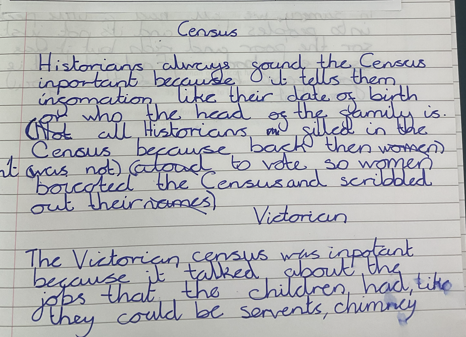 Census
Historians always gound the Census
inportant because it tells them
ingomation like their date og birth
or who the head og the gamily is.
(Not all Historians gilled in the
Census because back then women)
was not) (aloud to vote so women
boicoted the Census and scribbled
out their names)
Victorian
The Victorian census was inpotant
because it talked about the
jobs that the children, had, like
they could be servents, chimney